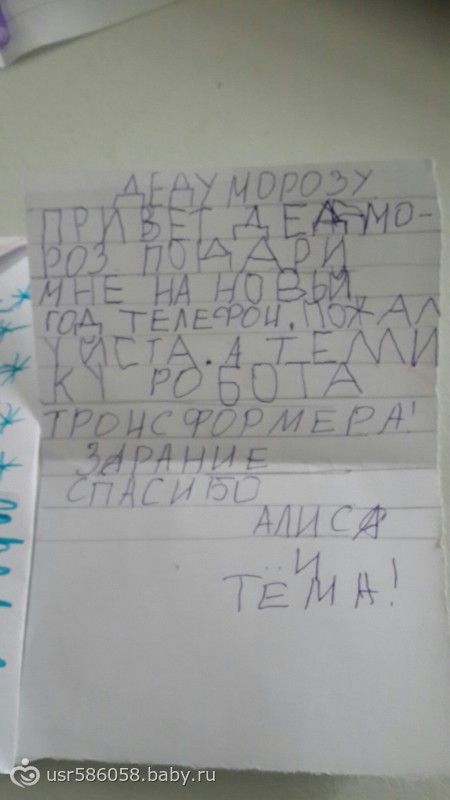 ДЕДУ МОРОЗУ
ПРИВЕТ ДЕД МО-
РОЗ ПОДАРИ
МНЕ НА НОВЫЙ
ГОД ТЕЛЕФОН. ПОЖАЛ
УЙСТА. А ТЕММИ
КУ РОБОТА
ТРОНСФОРМЕРА!
ЗАРАНИЕ
СПАСИБО
АЛИСА
И
ТЁМА!
usr586058.baby.ru